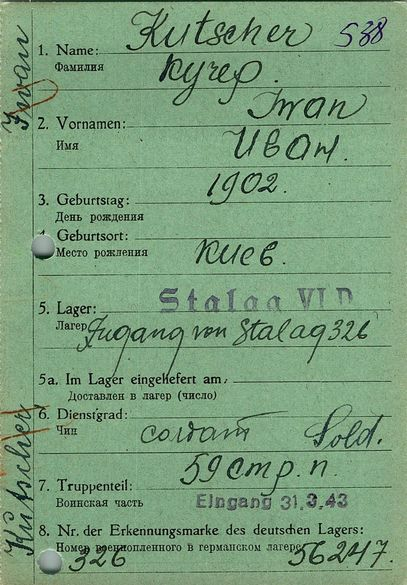 Kutscher 538
1. Name:
Фамилия
Кучер.
Iwan
2. Vornamen:
Имя
Иван.
1902.
3. Geburtstag:
День рождения
4. Geburtsort:
Место рождения
Киев.
5. Lager: Stalag VI D
Лагер Zugang von Stalag 326
5a. Im Lager eingeliefert am,
Доставлен в лагер (число)
6. Dienstgrad:
Чин
солдат Sold.
59 стр. п.
7. Truppenteil:
Воинская часть
Eingang 31.3.43
8. Nr. der Erkennungsmarke des deutschen Lagers:
Номер военнопленного в германском лагере
326 56247.
Kutscher Iwan